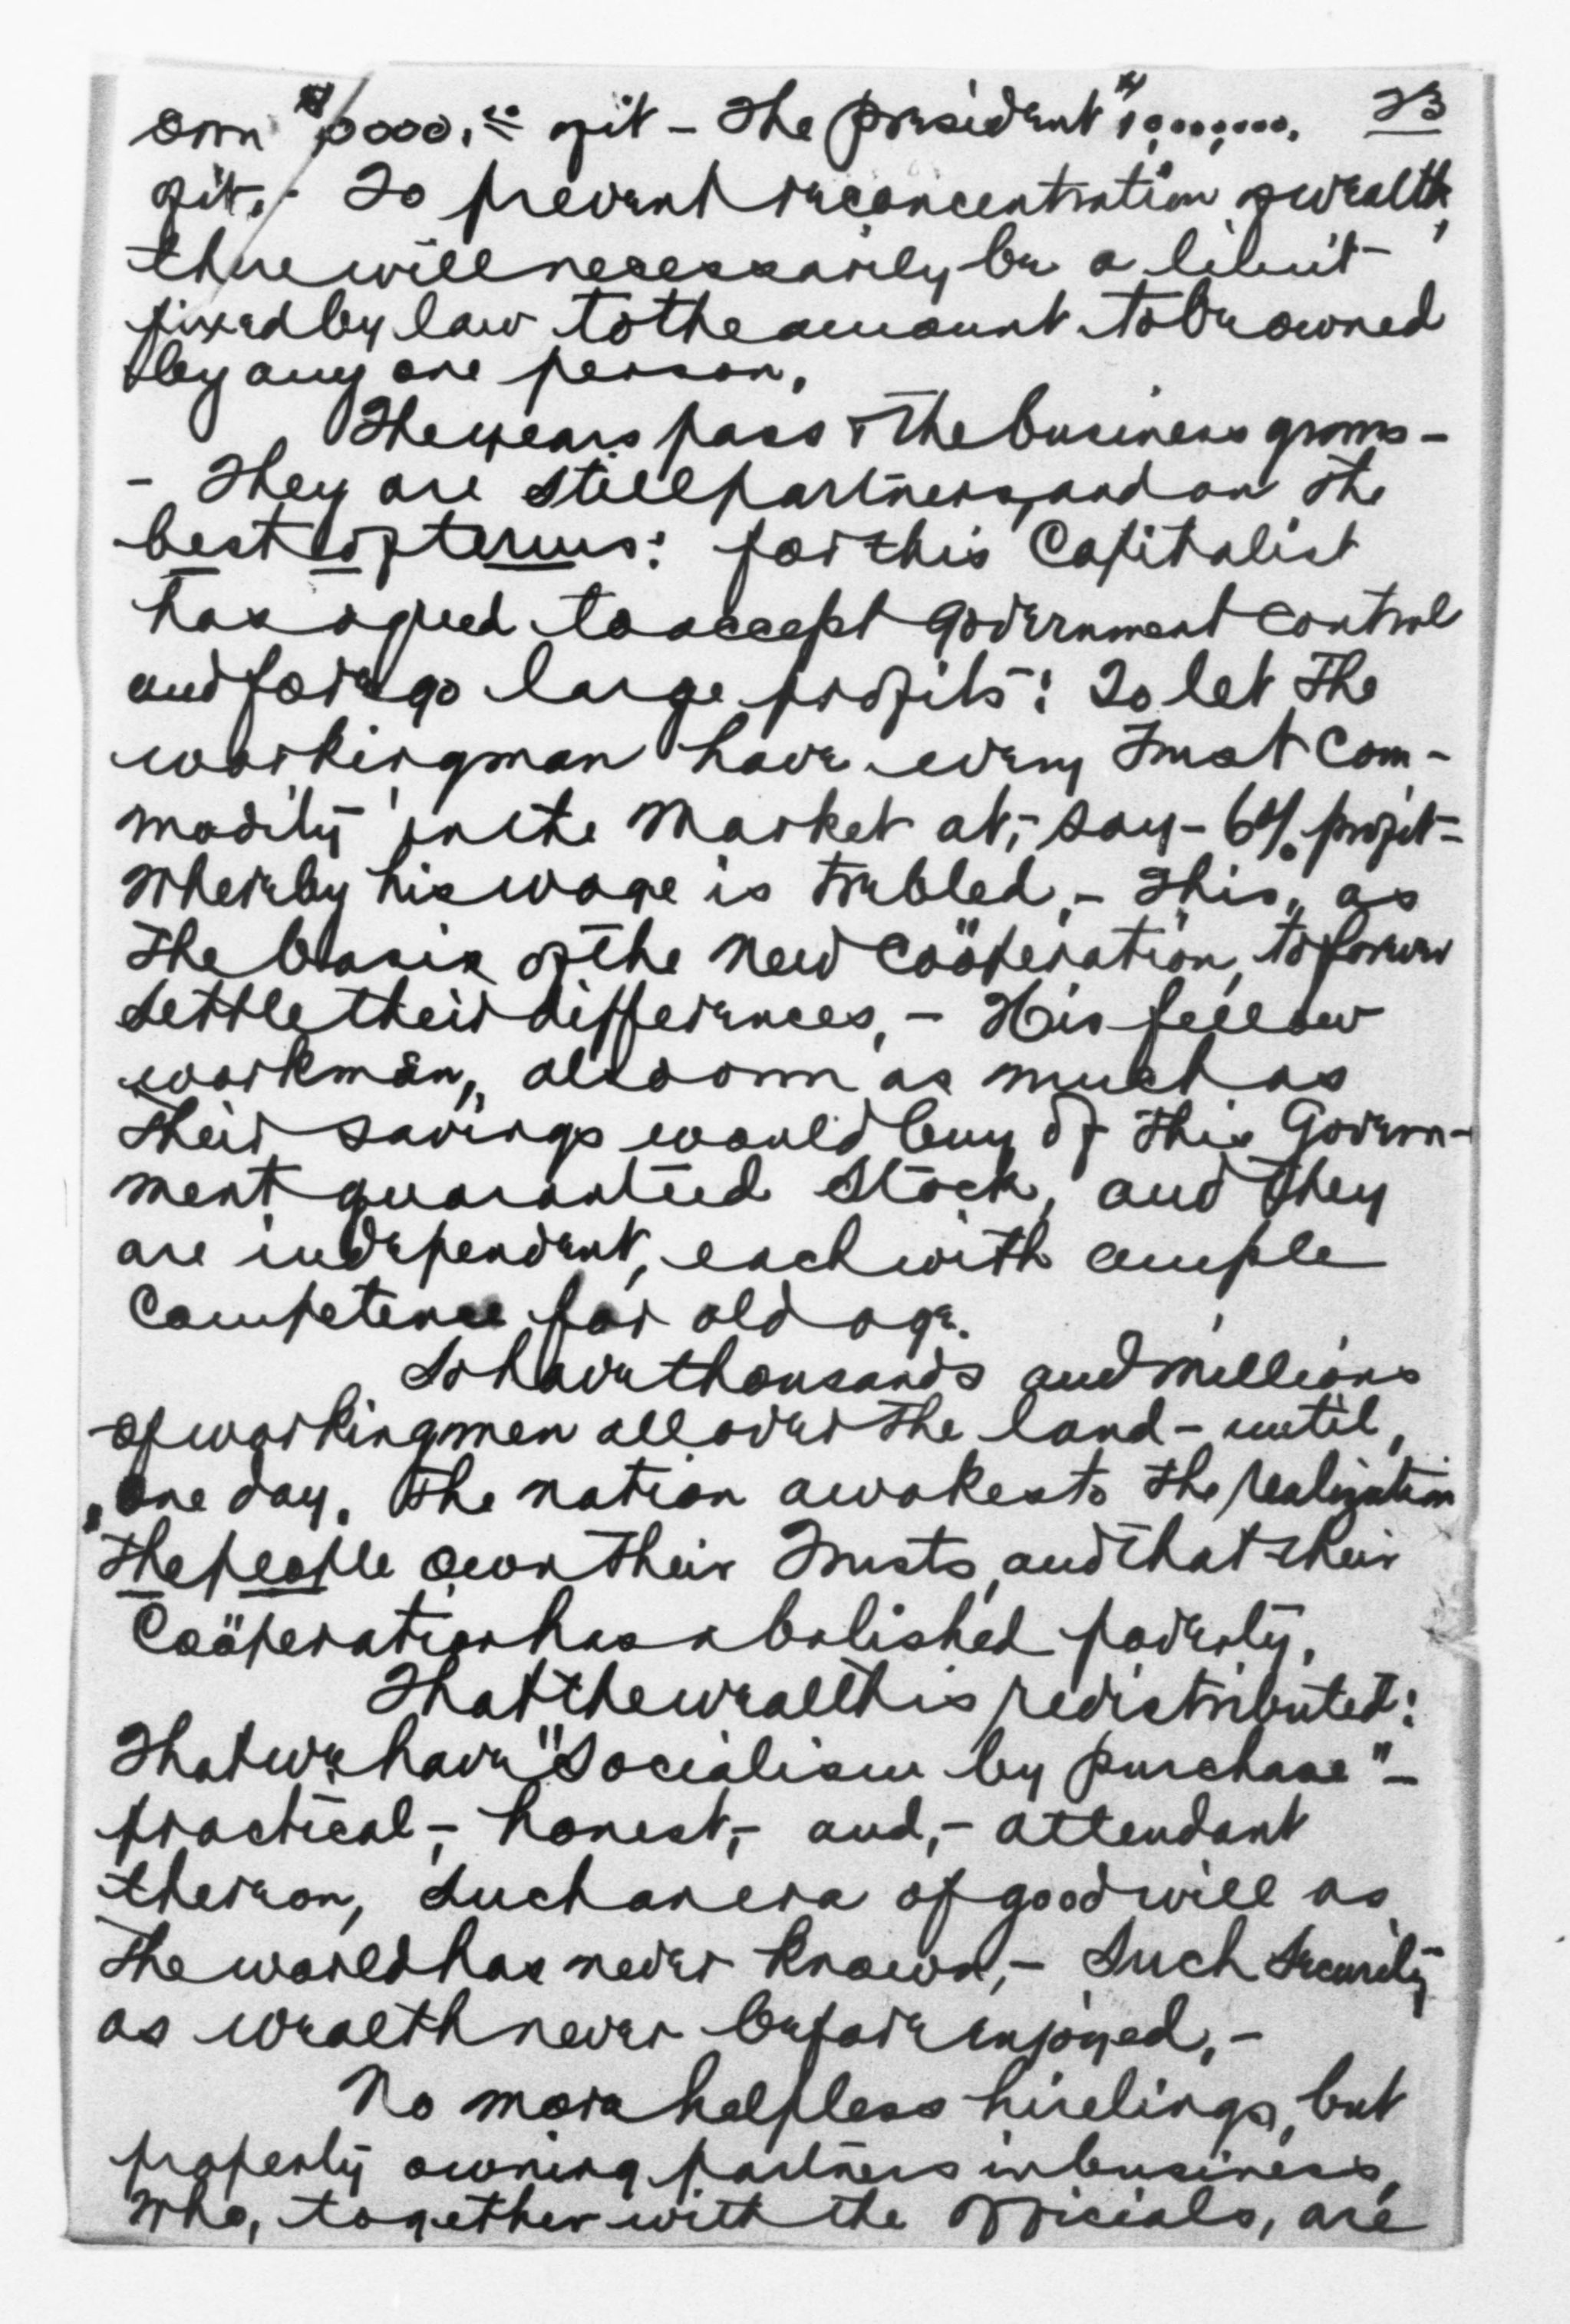 own $10000.00 of it – The president $10,000,000. 23
of it. – To prevent reconcentration of wealth,
there will necessarily be a limit
fixed by law to the amount to be owned
by any one person.
The years pass & the business grows –
– They are still partners, and on the
best of terms: for this Capitalist
has agreed to accept government control
and forego large profits: To let the
workingman have every Trust Com-
modity in the Market at, – say – 6% profit –
whereby his wage is trebled, – This, as
the basis of the new Coöperation, to forever
settle their differences, – His fellow
workmen, also own as much as
their savings would buy of this Govern-
ment guaranteed Stock, and they
are independent, each with ample
Competence for old age.
So have thousands and millions
of workingmen all over the land – until,
one day, the nation awakes to the realization
the people own their Trusts, and that their
Coöperation has abolished poverty.
That the wealth is redistributed:
That we have "Socialism by purchase" –
practical –, honest, – and, – attendant
thereon, such an era of good will as
the world has never known, – Such Security
as wealth never before enjoyed, –
No more helpless hirelings, but
property owning partners in business,
who, together with the Officials, are